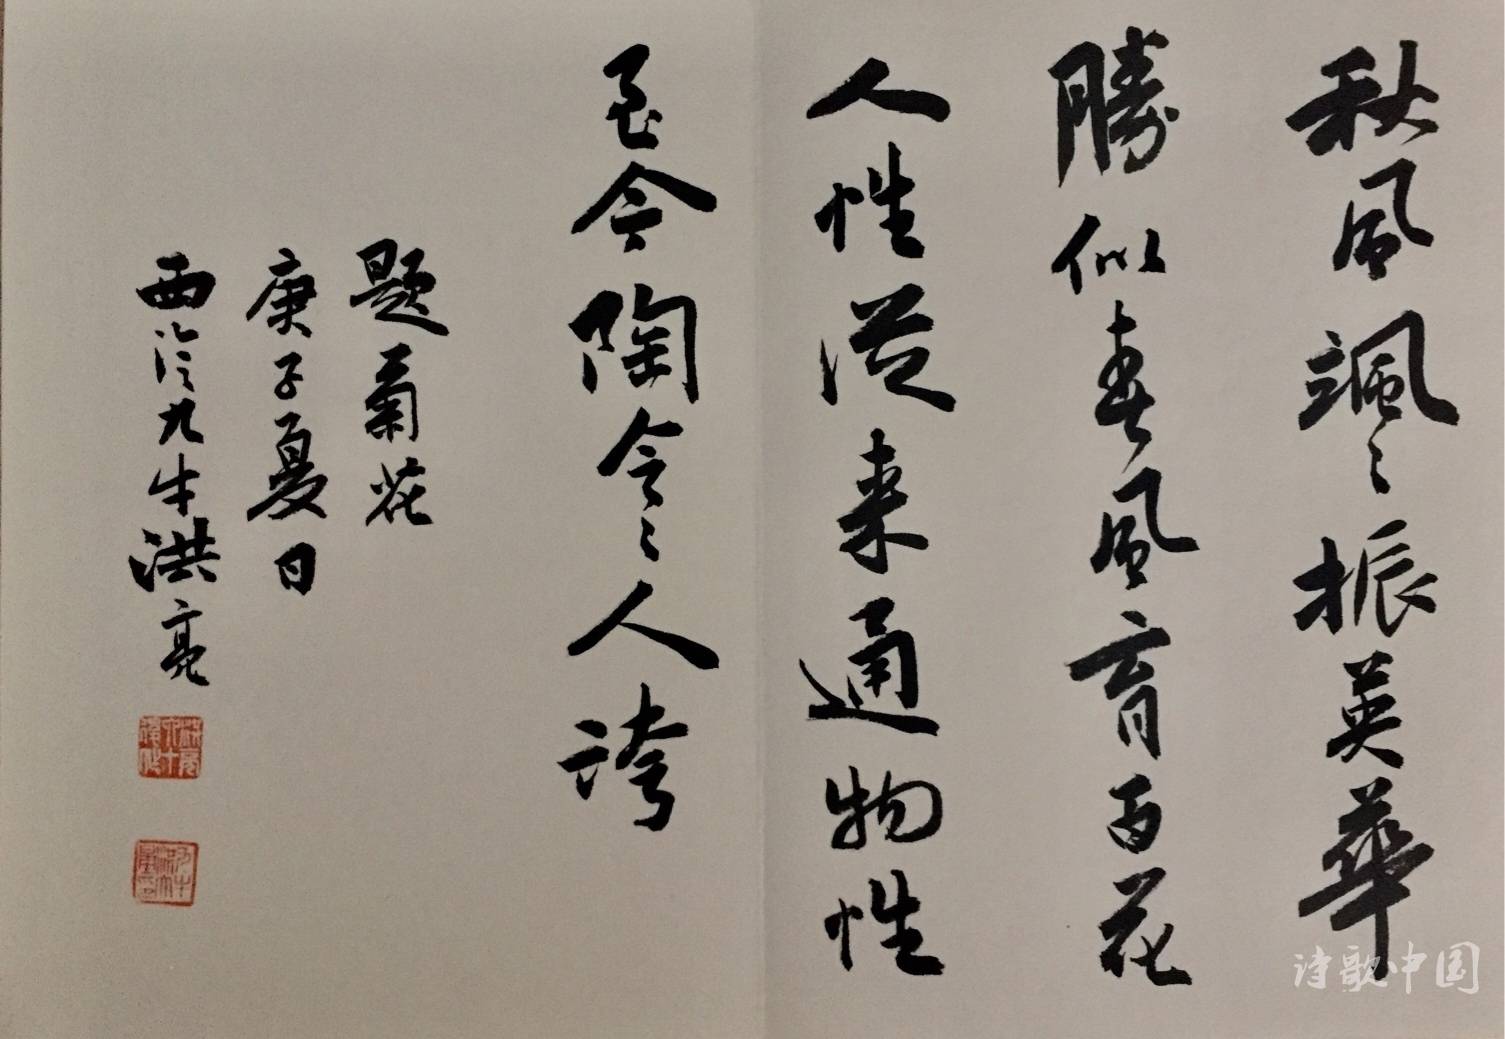 秋風颯々振英華
勝似春風育百花
人性從来通物性
至今陶令々人誇
題菊花
庚子夏日
西泠九牛洪亮
诗歌中国